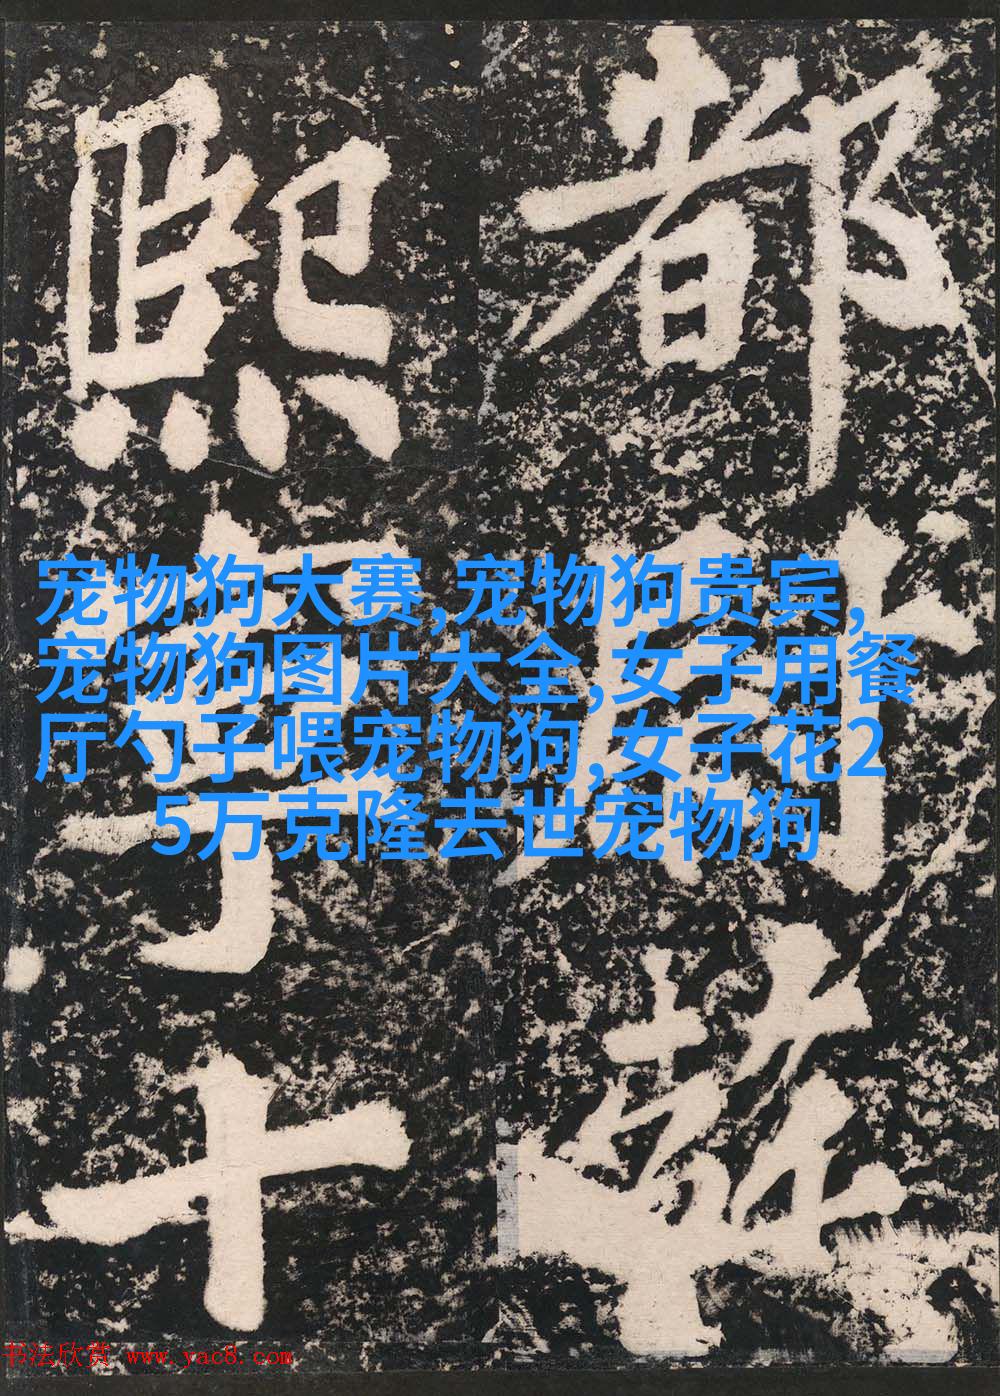 都
熙
十
宠物狗大赛,宠物狗贵宾,
宠物狗图片大全,女子用餐
厅勺子喂宠物狗,女子花2
5万克隆去世宠物狗
书法欣赏 www.yac8.com